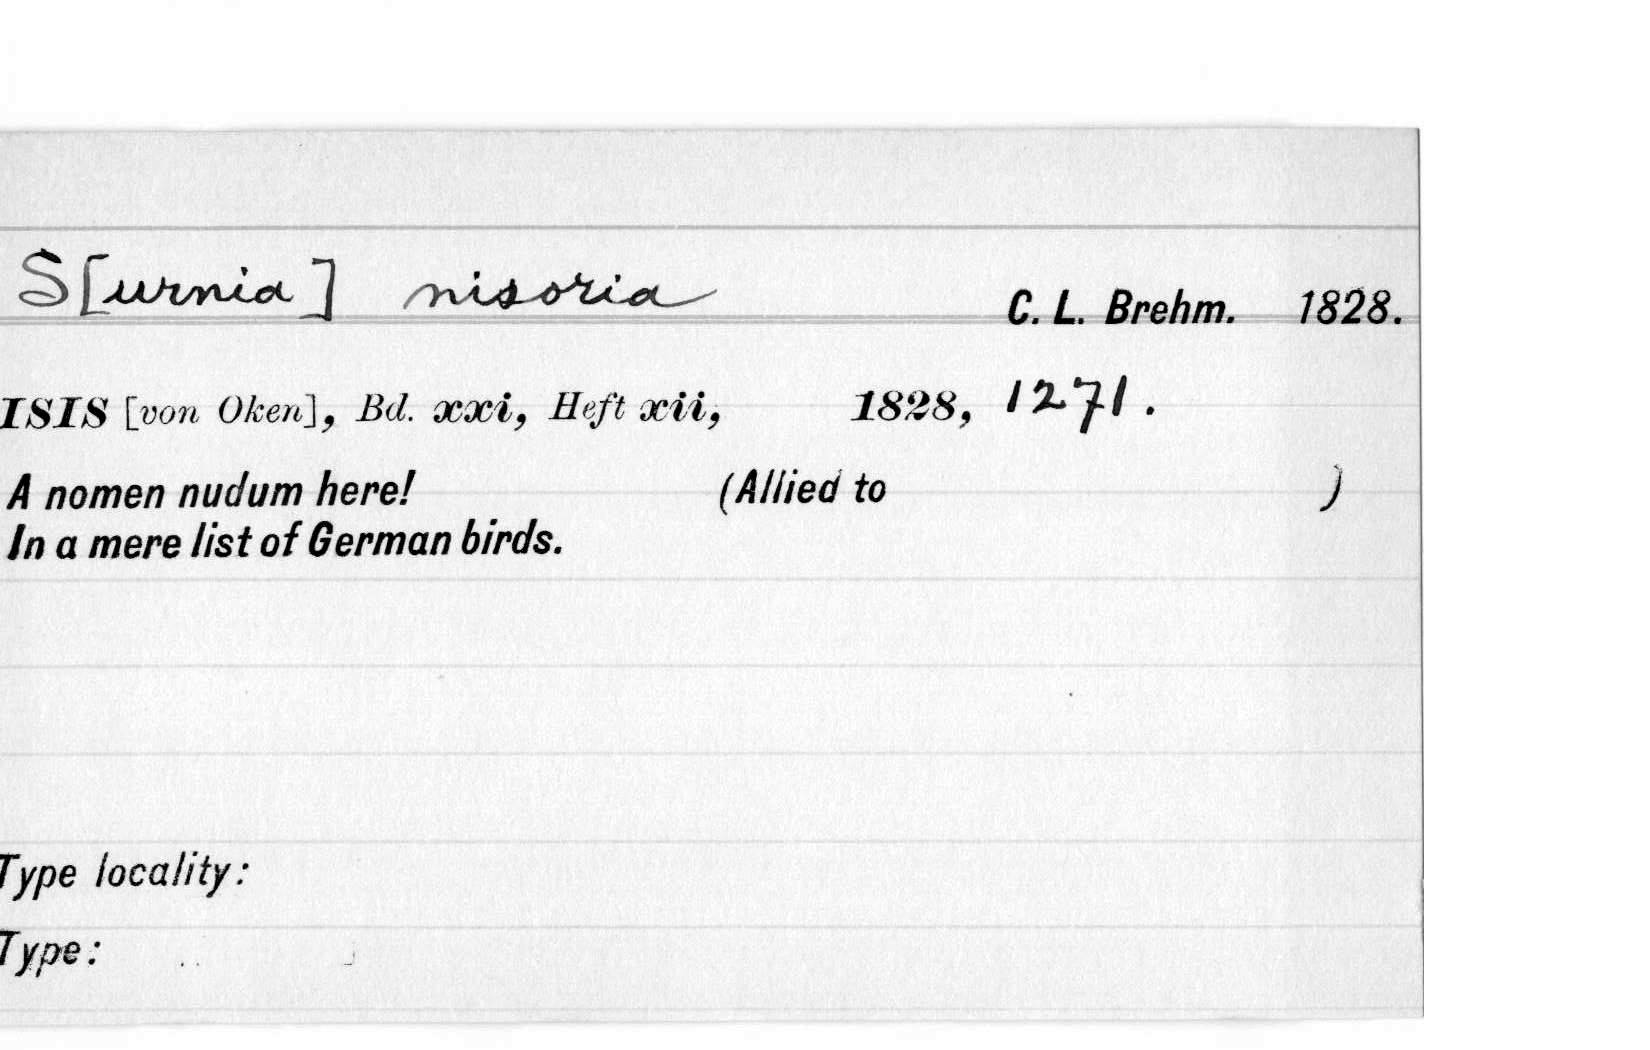 S[urnia] nisoria C. L. Brehm. 1828.
ISIS [von Oken], Bd. xxi, Heft xii, 1828, 1271.
A nomen nudum here! (Allied to )
In a mere list of German birds.
Type locality:
Type: